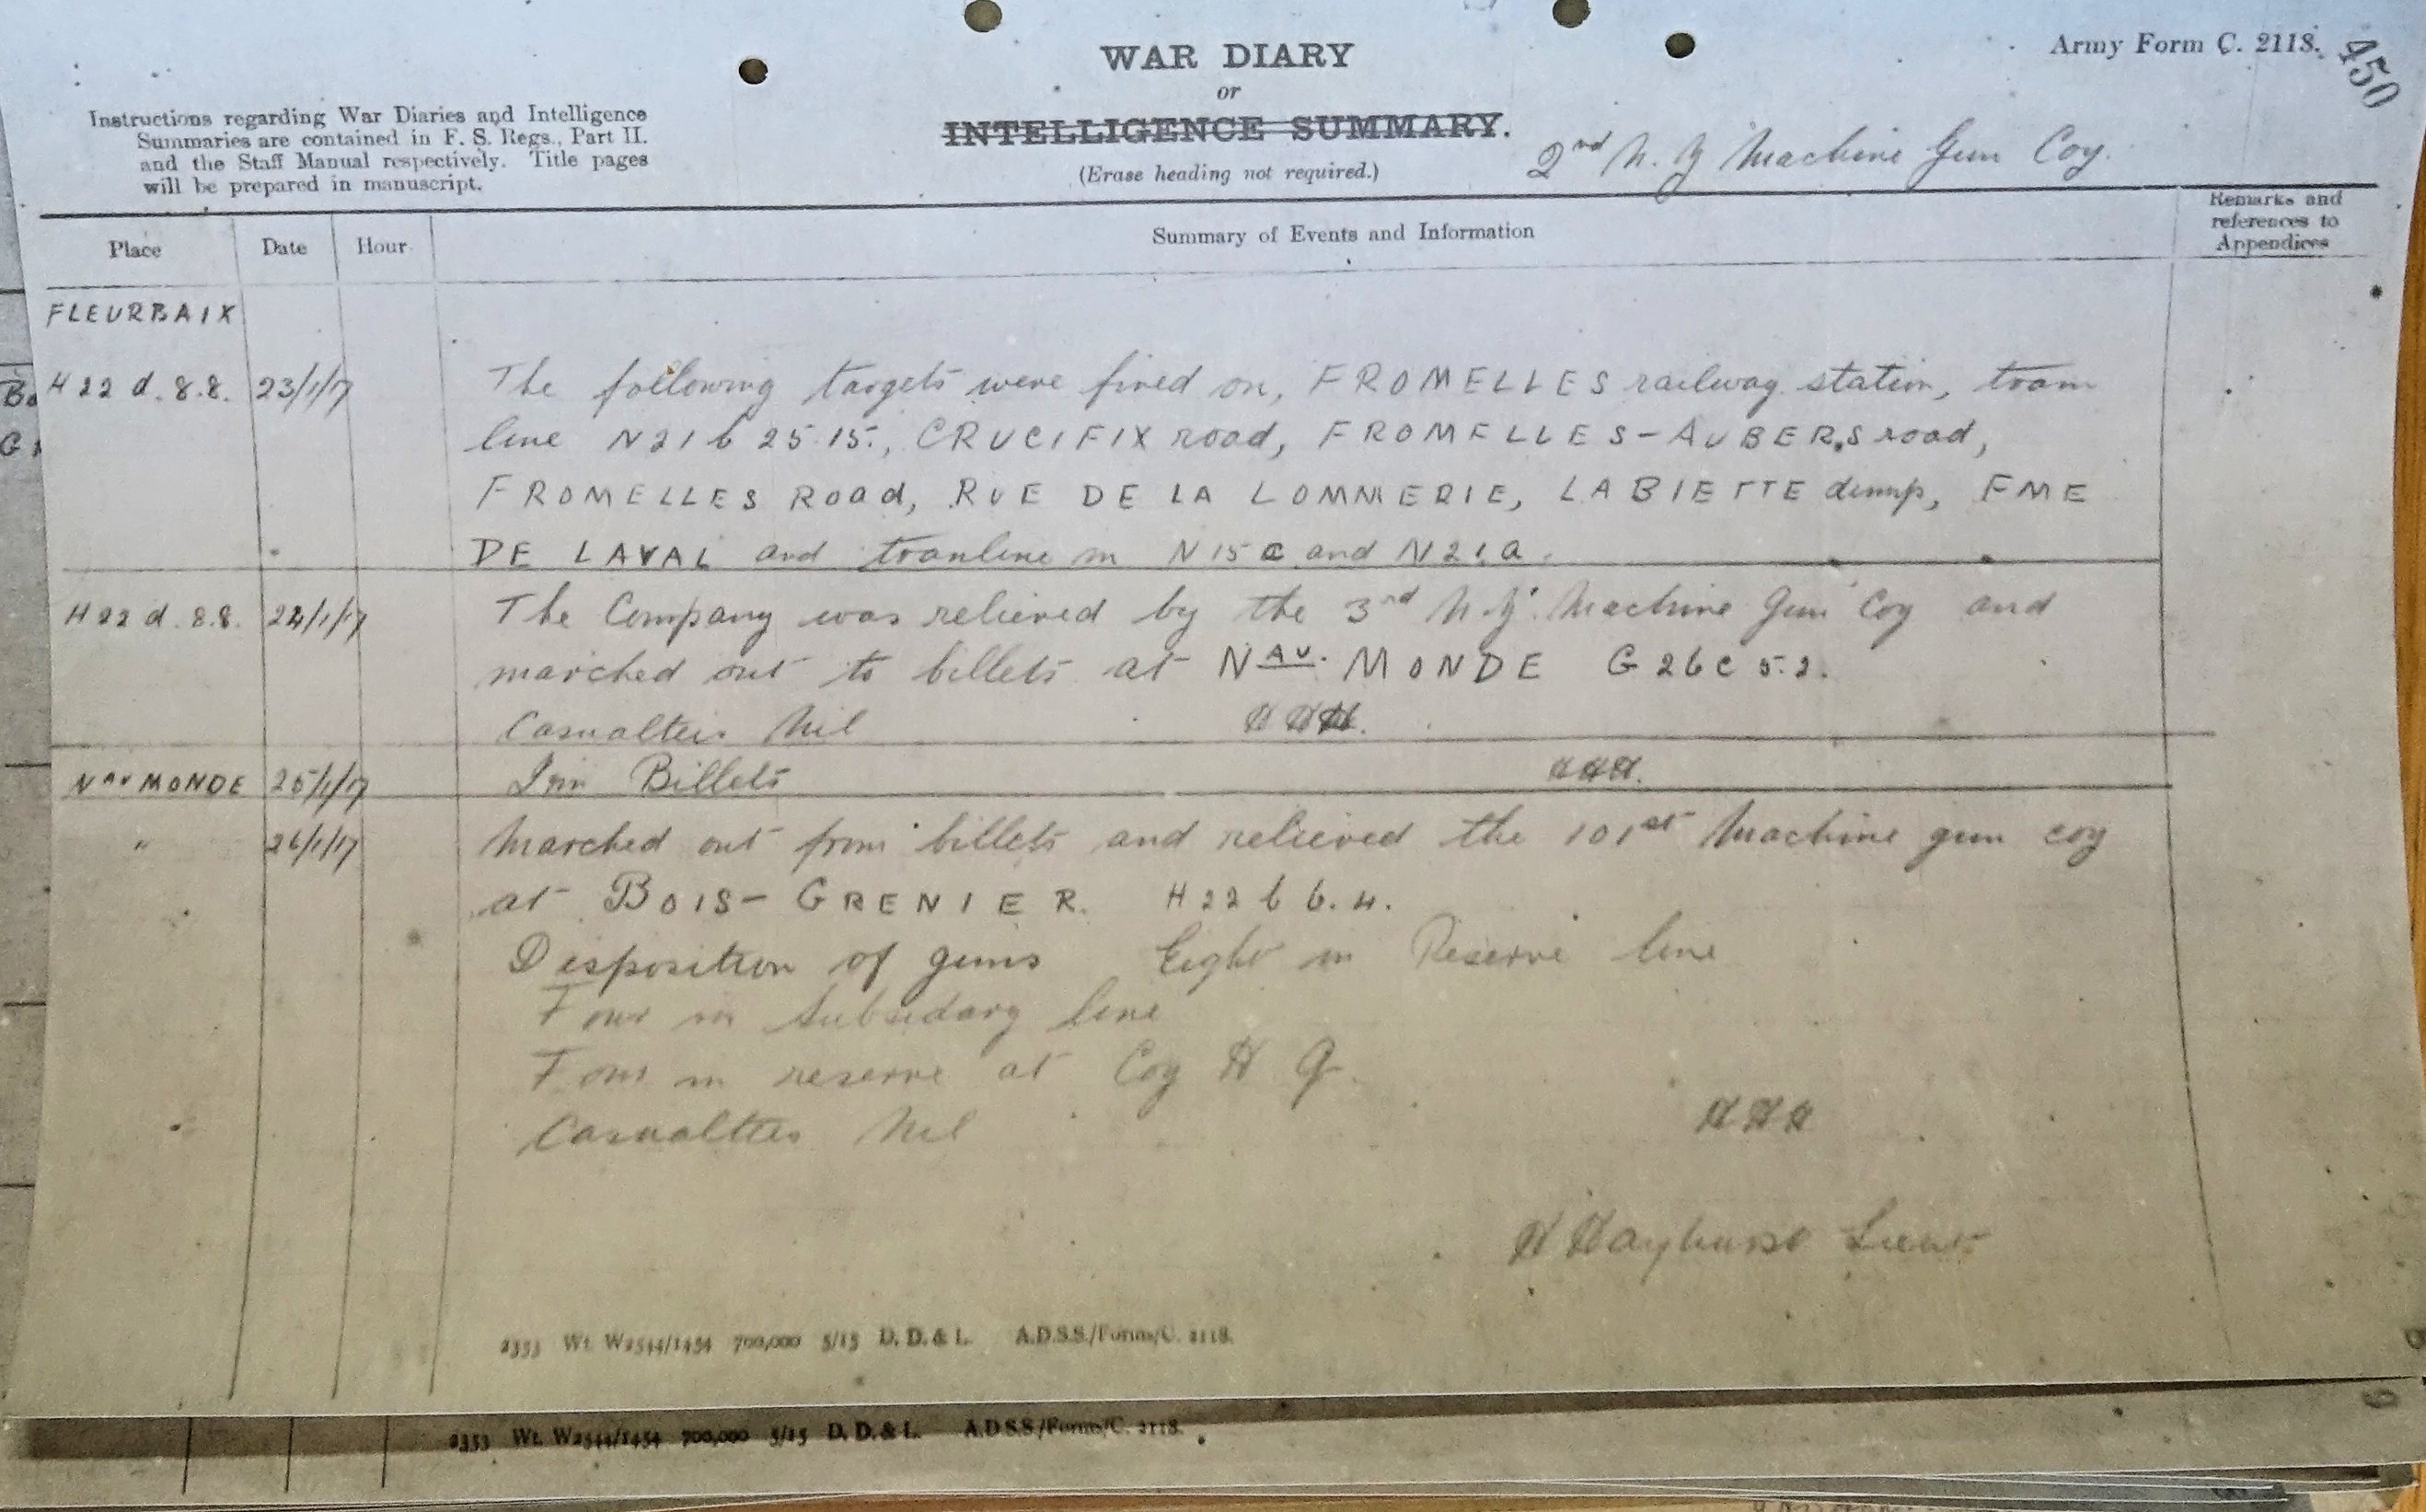 WAR DIARY
or
INTELLIGENCE SUMMARY.
(Erase heading not required.)
Army Form C. 2118.
450
Instructions regarding War Diaries and Intelligence
Summaries are contained in F. S. Regs., Part II.
and the Staff Manual respectively. Title pages
will be prepared in manuscript.
2nd N. Z Machine Gun Coy.
Place Date Hour Summary of Events and Information
Remarks and
references to
Appendices
FLEURBAIX
H 22 d. 8.8. 23/1/17 The following targets were fired on, FROMELLES railway station, tram
line N21 b 25.15., CRUCIFIX road, FROMELLES-AUBERS road,
FROMELLES Road, RUE DE LA LOMMERIE, LA BIETTE dump, FME
DE LAVAL and tramline in N15 c and N21a.
H 22 d. 8.8. 24/1/17 The Company was relieved by the 3rd N.Z. Machine Gun Coy and
marched out to billets at NAU. MONDE G 26 C 5.2.
Casualties Nil HHH.
NAU MONDE 25/1/17 In Billets HHH.
" 26/1/17 Marched out from billets and relieved the 101st Machine gun coy
at BOIS-GRENIER. H 22 b 6.4.
Disposition of guns Eight in Reserve line
Four in Subsidary line
Four in reserve at Coy H Q.
Casualties Nil
HHH
H Hayhurst Lieut
2353 Wt. W2544/1454 700,000 5/15 D. D. & L. A.D.S.S./Forms/C. 2118.
2353 Wt. W2544/1454 700,000 5/15 D. D. & L. A.D.S.S./Forms/C. 2118.